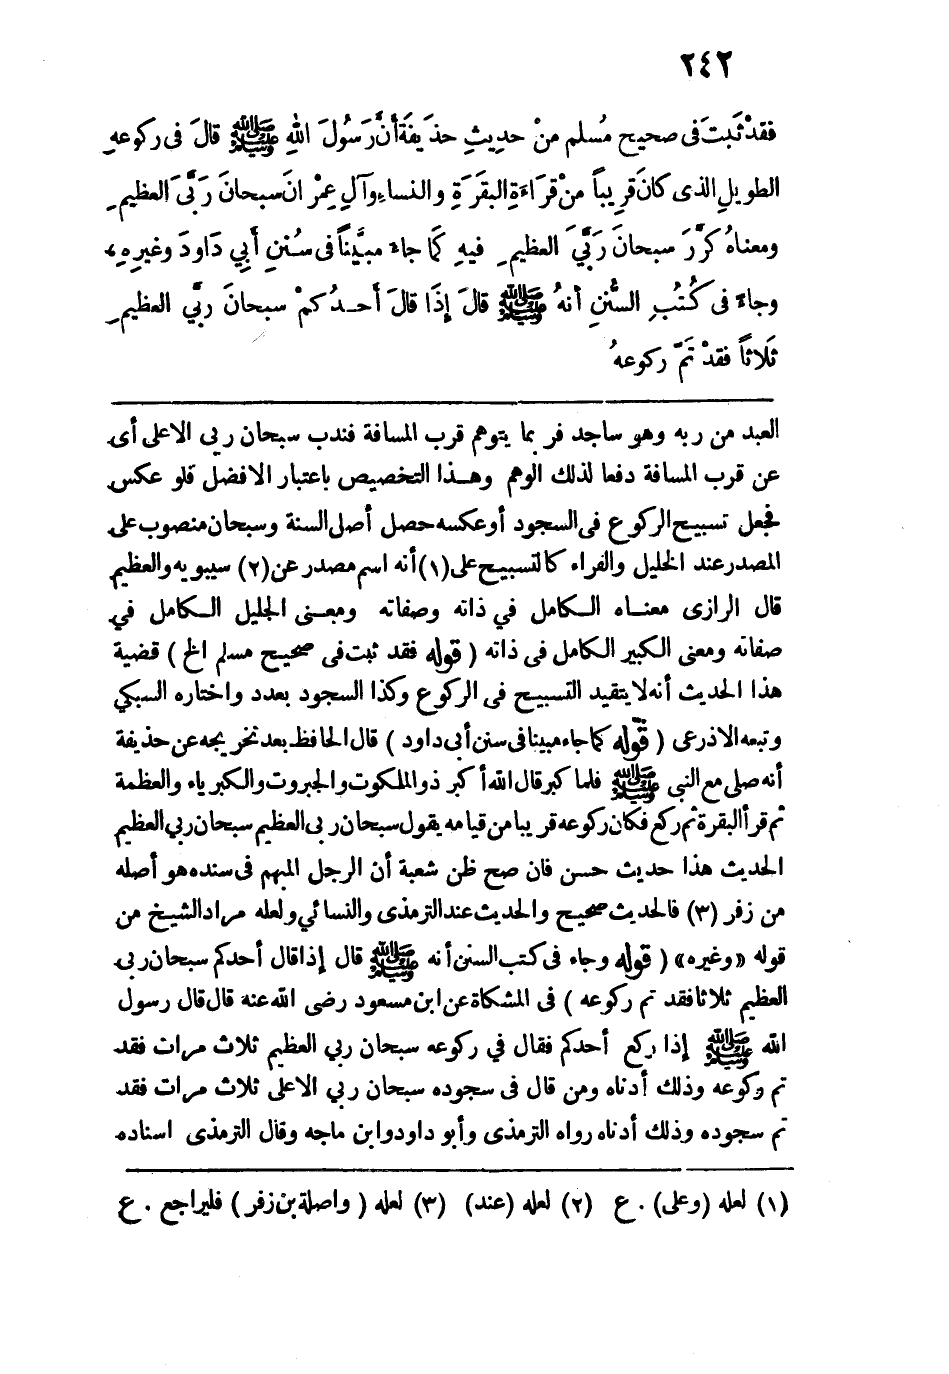 ٢٤٢
فقدْ ثَبتَ فى صحيح مُسلم منْ حدِيثِ حذَيفَةَ أنَّ رَسُولَ اللهِ ﷺ قالَ فى ركوعهِ
الطويلِ الذى كانَ قرِيباً منْ قرَاءَةِ البقَرَةِ والنساءِ وآلِ عِمْرانَ سبحانَ رَبِّىَ العظيمِ
ومعناهُ كرَّرَ سبحانَ رَبِّيَ العظيمِ فيهِ كمَا جاءَ مبيَّناً فى سُننِ أبِي دَاودَ وغيرِهِ ،
وجاءَ فى كُتُبِ السُّننِ أنهُ ﷺ قالَ إذَا قالَ أحدُكمْ سبحانَ ربِّي العظيمِ
ثَلاثاً فقدْ تَمّ ركوعهُ
العبد من ربه وهو ساجد فربما يتوهم قرب المسافة فندب سبحان ربي الاعلى أى
عن قرب المسافة دفعا لذلك الوهم وهـذا التخصيص باعتبار الافضل فلو عكس
فجعل تسبيح الركوع فى السجود أو عكسه حصل أصل السنة وسبحان منصوب على
المصدر عند الخليل والفراء كالتسبيح على (١) أنه اسم مصدر عن (٢) سيبويه والعظيم
قال الرازى معنـاه الـكامل في ذاته وصفاته ومعـنى الجليل الـكامل في
صفاته ومعنى الكبير الكامل فى ذاته ( قوله فقد ثبت فى صحيح مسلم الخ ) قضية
هذا الحديث أنه لا يتقيد التسبيح فى الركوع وكذا السجود بعدد واختاره السبكي
وتبعه الاذرعى ( قوله كما جاء مبينا فى سنن أبى داود ) قال الحافظ بعد تخريجه عن حذيفة
أنه صلى مع النبي ﷺ فلما كبر قال الله أكبر ذو الملكوت والجبروت والكبرياء والعظمة
ثم قرأ البقرة ثم ركع فكان ركوعه قريبا من قيامه يقول سبحان ربى العظيم سبحان ربي العظيم
الحديث هذا حديث حسن فان صح ظن شعبة أن الرجل المبهم فى سنده هو أصله
من زفر (٣) فالحديث صحيح والحديث عند الترمذى والنسائي ولعله مراد الشيخ من
قوله «وغيره» ( قوله وجاء فى كتب السنن أنه ﷺ قال إذا قال أحدكم سبحان ربى
العظيم ثلاثا فقد تم ركوعه ) فى المشكاة عن ابن مسعود رضى الله عنه قال قال رسول
الله ﷺ إذا ركع أحدكم فقال في ركوعه سبحان ربي العظيم ثلاث مرات فقد
تم ركوعه وذلك أدناه ومن قال فى سجوده سبحان ربي الاعلى ثلاث مرات فقد
تم سجوده وذلك أدناه رواه الترمذى وأبو داود وابن ماجه وقال الترمذى اسناده
(١) لعله (وعلى) . ع (٢) لعله (عند) (٣) لعله ( واصلة بن زفر ) فليراجع . ع